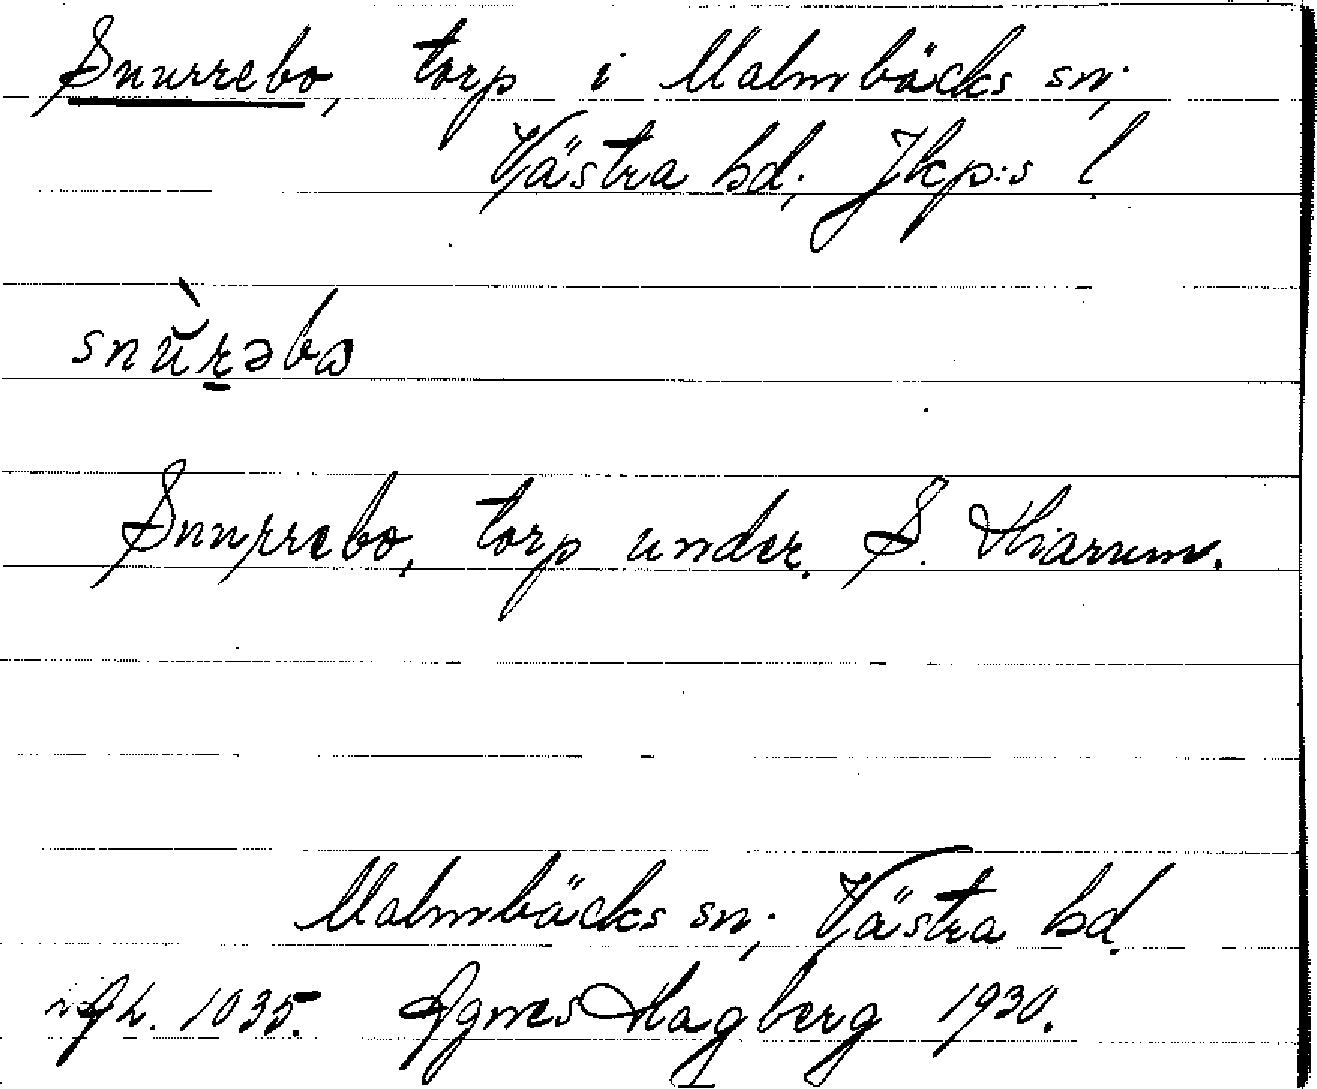 Snurrebo, torp i Malmbäcks sn;
Västra hd; Jkp:s l.
snùrəbo
Snurrebo, torp under S. Hiarum.
Malmbäcks sn; Västra hd.
Acc. 1035. Agnes Hagberg 1930.